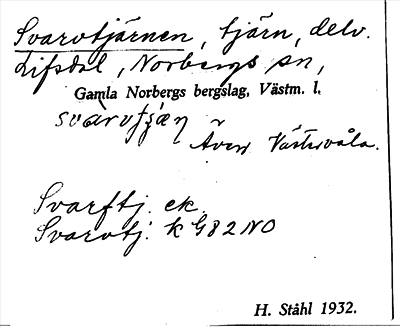 Svarvtjärnen, tjärn, delv.
Lifsdal, Norbergs sn,
Gamla Norbergs bergslag, Västm. l.
svàrvtjæ̨ṇ
Även Västervåla.
Svarftj. ek.
Svarvtj. k G82NO
H. Ståhl 1932.